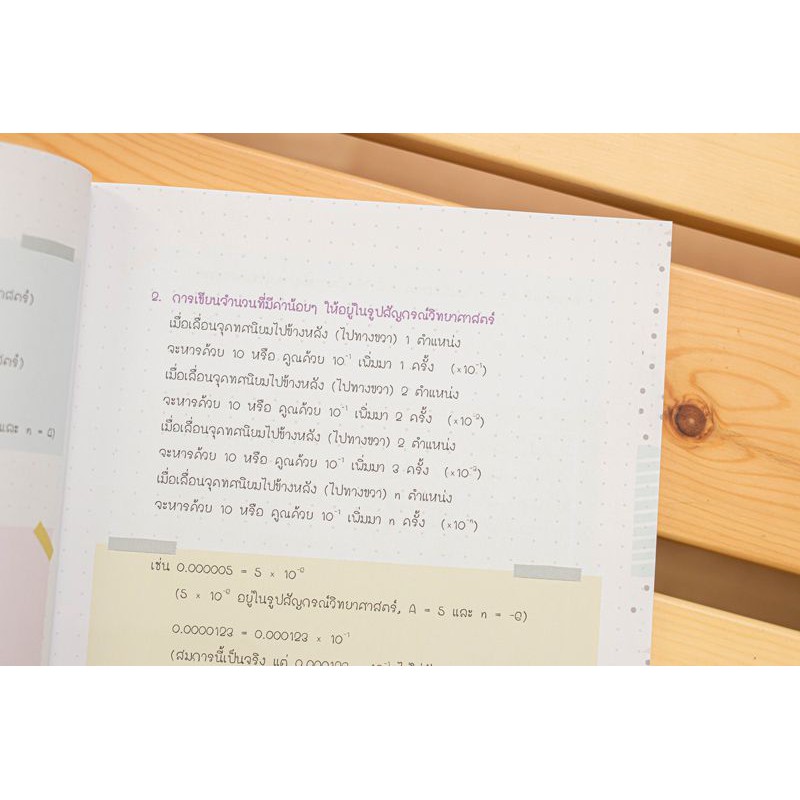 าศาสตร์)
สตร์)
และ n = 6)
2. การเขียนจำนวนที่มีค่าน้อยๆ ให้อยู่ในรูปสัญกรณ์วิทยาศาสตร์
เมื่อเลื่อนจุดทศนิยมไปข้างหลัง (ไปทางขวา) 1 ตำแหน่ง
จะหารด้วย 10 หรือ คูณด้วย 10⁻¹ เพิ่มมา 1 ครั้ง (×10⁻¹)
เมื่อเลื่อนจุดทศนิยมไปข้างหลัง (ไปทางขวา) 2 ตำแหน่ง
จะหารด้วย 10 หรือ คูณด้วย 10⁻¹ เพิ่มมา 2 ครั้ง (×10⁻²)
เมื่อเลื่อนจุดทศนิยมไปข้างหลัง (ไปทางขวา) 2 ตำแหน่ง
จะหารด้วย 10 หรือ คูณด้วย 10⁻¹ เพิ่มมา 3 ครั้ง (×10⁻³)
เมื่อเลื่อนจุดทศนิยมไปข้างหลัง (ไปทางขวา) n ตำแหน่ง
จะหารด้วย 10 หรือ คูณด้วย 10⁻¹ เพิ่มมา n ครั้ง (×10⁻ⁿ)
เช่น 0.000005 = 5 × 10⁻⁶
(5 × 10⁻⁶ อยู่ในรูปสัญกรณ์วิทยาศาสตร์, A = 5 และ n = -6)
0.0000123 = 0.000123 × 10⁻¹
(สมการนี้เป็นจริง แต่ 0.000123